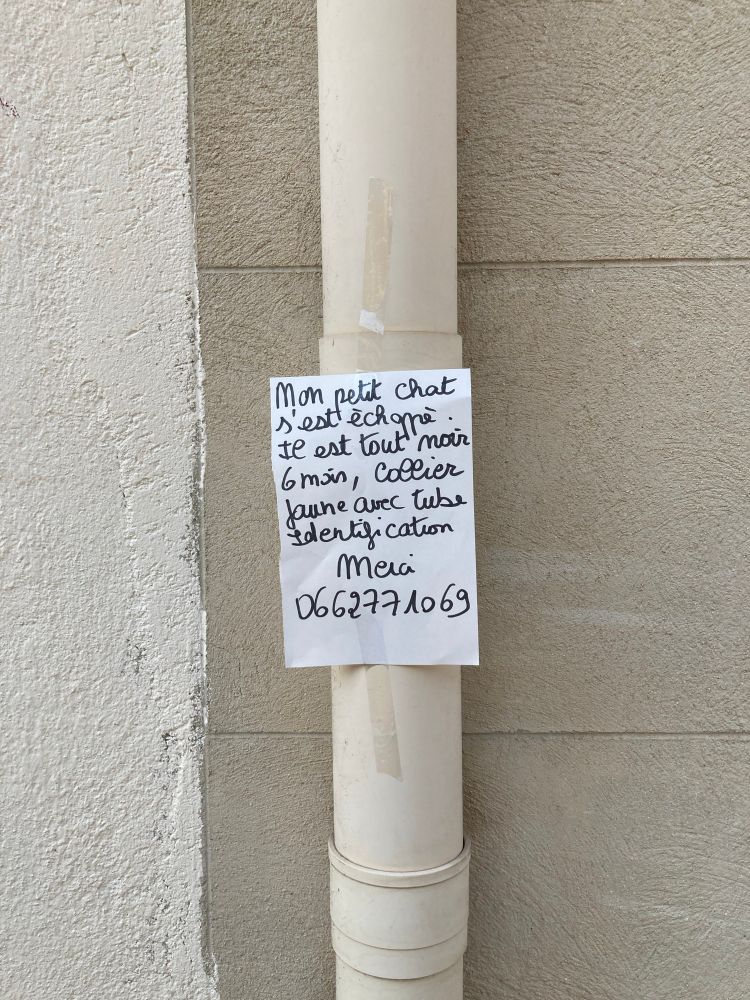 Mon petit chat
s'est èchappè.
Il est tout noir
6 mois, Collier
Jaune avec tube
Identification
Merci
0662771069